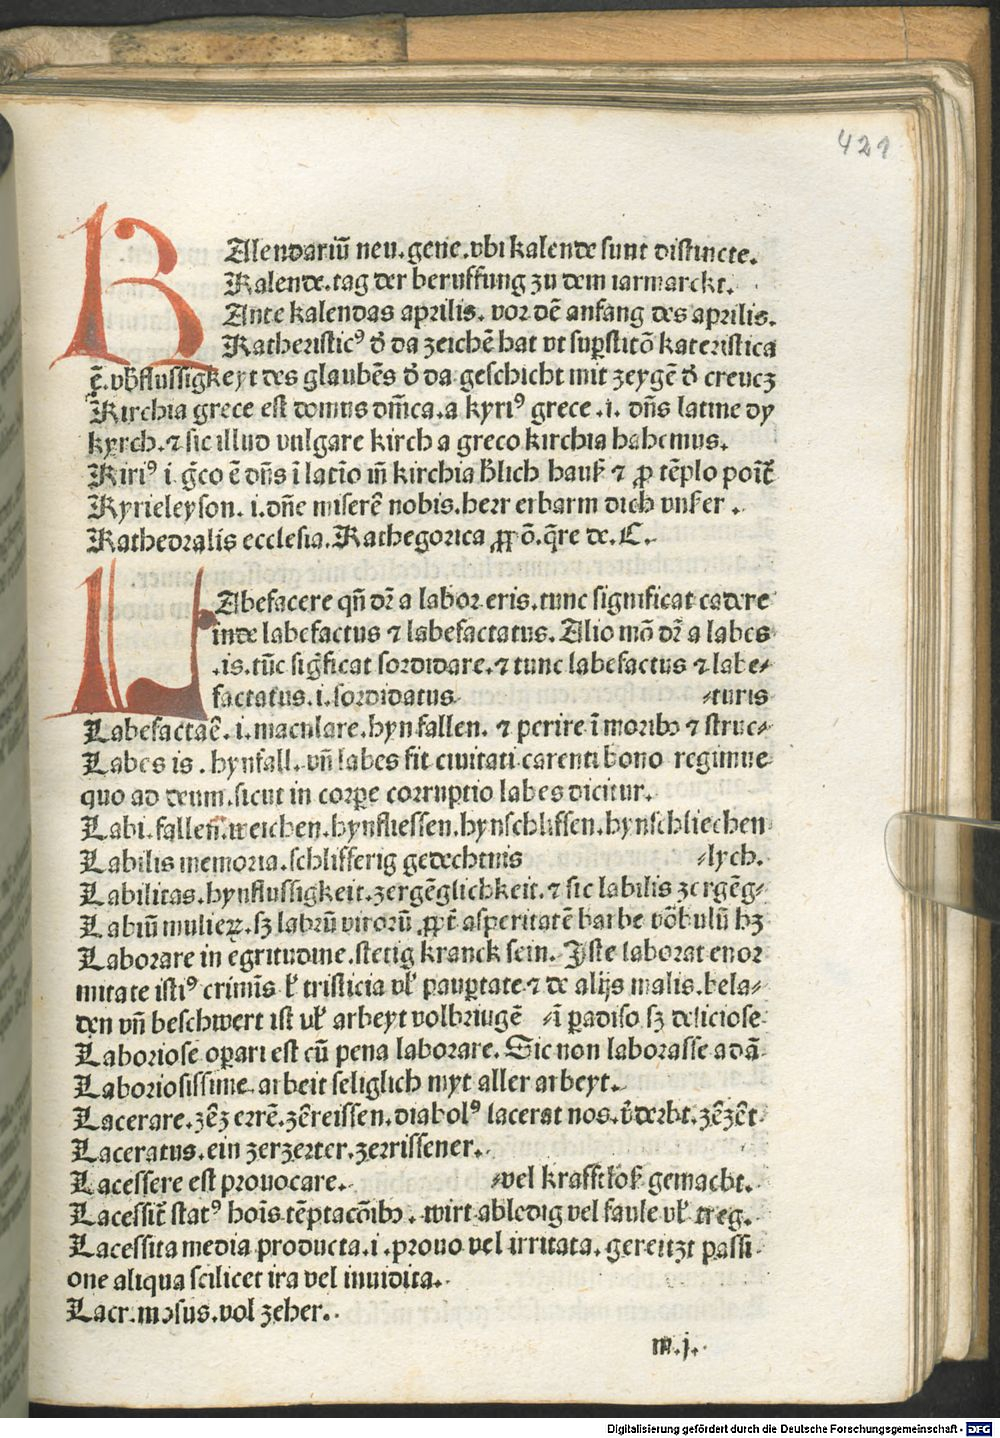 421
KAlendariū neu. gene. vbi kalende sunt distincte.
Kalende. tag der beruffung zu dem iarmarckt.
Ante kalendas aprilis. vor dē anfang des aprilis.
Katheristicꝰ d̕ da zeichē hat vt suꝑstitō kateristica
ē. vb̕flussigkeyt des glaubēs d̕ da geschicht mit zeygē d̕ creucz
Kirchia grece est domus dm̄ica. a kyriꝰ grece .i. dn̄s latine dy
kyrch. ⁊ sic illud vulgare kirch a greco kirchia habemus.
Kiriꝰ i ḡco ē dn̄s ī latīo in̄ kirchia
Kyrieleyson. i. dn̄e miserē nobis. herr erbarm dich vnser .
Kathedralis ecclesia. Kathegorica ꝓpō. q̄re de. C.
LAbefacere qn̄ dr̄ a labor eris. tunc significat cadere
inde labefactus ⁊ labefactatus. Alio mō dr̄ a labes
.is. tūc siḡficat sordidare. ⁊ tunc labefactus ⁊ labe⸗
factatus. i. sordidatus ⸗turis
Labefactaē. i. maculare. hynfallen. ⁊ perire ī moribꝫ ⁊ struc⸗
Labes is . hynfall. vn̄ labes fit ciuitati carenti bono regimine
quo ad deum. sicut in corꝑe corruptio labes dicitur.
Labi. fallen̄. weichen. hynfliessen. hynschlissen. hynschliechen
Labilis memoria. schlifferig gedechtnis ⸗lych.
Labilitas. hynflussigkeit. zergēglichkeit. ⁊ sic labilis zergēg⸗
Labiū mulieꝝ. sꝫ labrū virorū ꝓpt̄ asperitatē barbe vōbulū hꝫ
Laborare in egritudine. stetig kranck sein. Iste laborat enor
mitate istiꝰ crimīs vl̕ tristicia vl̕ pauꝑtate ⁊ de alijs malis. bela⸗
den vn̄ beschwert ist vl̕ arbeyt volbringē ⸗ī ꝑadiso sꝫ deliciose
Laboriose oꝑari est cū pena laborare. Sic non laborasse adā
Laboriosissime. arbeit seliglich myt aller arbeyt.
Lacerare. zēzerrē. zēreissen. diabolꝰ lacerat nos. v̕derbt. zēzēt
Laceratus. ein zerzerter. zerrissener.
Lacessere est prouocare. ⸗vel krafftloß gemacht.
Lacessit̄ statꝰ hoīs tēptacōibꝫ . wirt abledig vel faule vl̕ treg.
Lacessita media producta. i. prouo vel irritata. gereitzt passi
one aliqua scilicet ira vel inuidita.
Lacrimosus. vol zeher.
m. j.
Digitalisierung gefördert durch die Deutsche Forschungsgemeinschaft - DFG